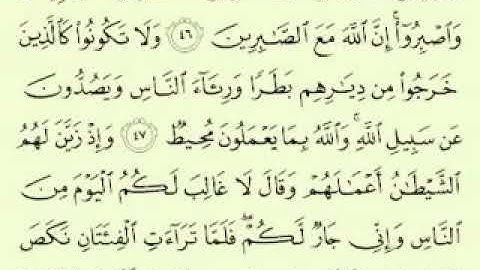 وَٱصۡبِرُوٓاْۚ إِنَّ ٱللَّهَ مَعَ ٱلصَّٰبِرِينَ ٤٦ وَلَا تَكُونُواْ كَٱلَّذِينَ
خَرَجُواْ مِن دِيَٰرِهِم بَطَرٗا وَرِئَآءَ ٱلنَّاسِ وَيَصُدُّونَ
عَن سَبِيلِ ٱللَّهِۚ وَٱللَّهُ بِمَا يَعۡمَلُونَ مُحِيطٞ ٤٧ وَإِذۡ زَيَّنَ لَهُمُ
ٱلشَّيۡطَٰنُ أَعۡمَٰلَهُمۡ وَقَالَ لَا غَالِبَ لَكُمُ ٱلۡيَوۡمَ مِنَ
ٱلنَّاسِ وَإِنِّي جَارٞ لَّكُمۡۖ فَلَمَّا تَرَآءَتِ ٱلۡفِئَتَانِ نَكَصَ